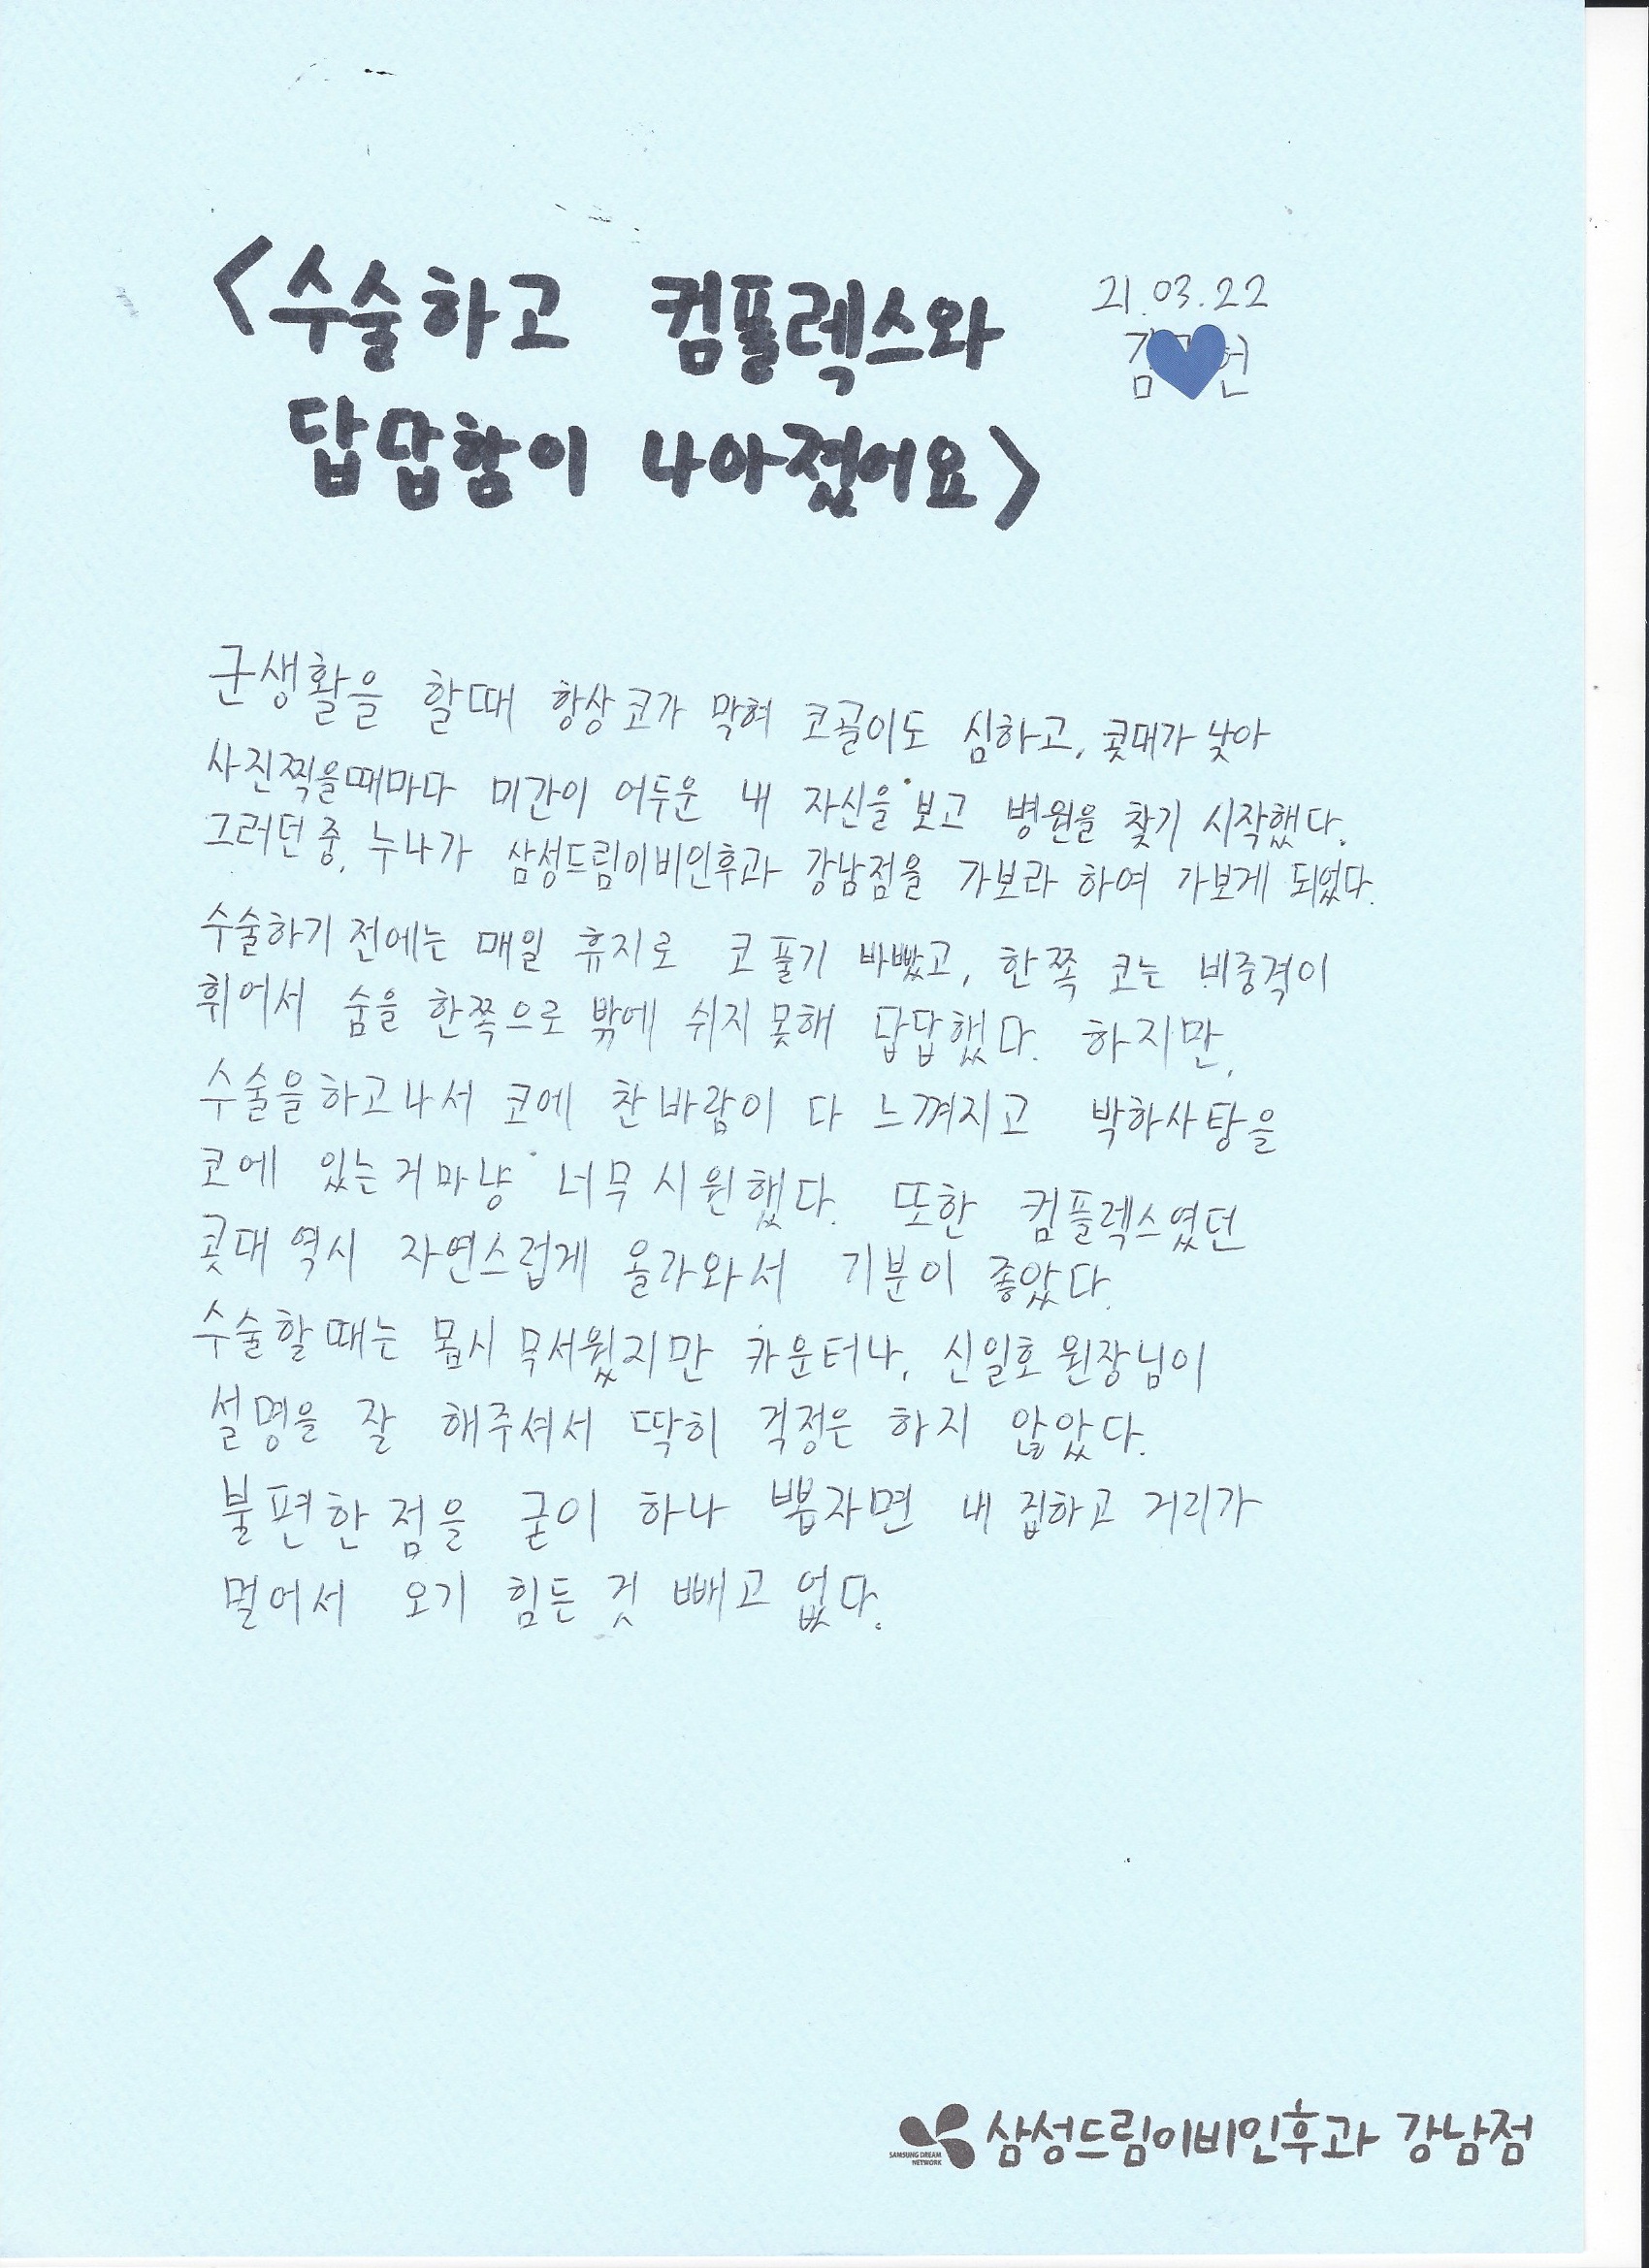 <수술하고 컴플렉스와
21.03.22
김 현
답답함이 나아졌어요>
군생활을 할때 항상 코가 막혀 코골이도 심하고, 콧대가 낮아
사진찍을때마다 미간이 어두운 내 자신을 보고 병원을 찾기 시작했다.
그러던 중, 누나가 삼성드림이비인후과 강남점을 가보라 하여 가보게 되었다.
수술하기 전에는 매일 휴지로 코 풀기 바빴고, 한쪽 코는 비중격이
휘어서 숨을 한쪽으로 밖에 쉬지 못해 답답했다. 하지만,
수술을하고나서 코에 찬바람이 다 느껴지고 박하사탕을
코에 있는거마냥 너무 시원했다. 또한 컴플렉스였던
콧대 역시 자연스럽게 올라와서 기분이 좋았다.
수술할때는 몹시 무서웠지만 카운터나, 신일호 원장님이
설명을 잘 해주셔서 딱히 걱정은 하지 않았다.
불편한 점을 굳이 하나 뽑자면 내 집하고 거리가
멀어서 오기 힘든 것 빼고 없다.
삼성드림이비인후과 강남점
SAMSUNG DREAM
NETWORK